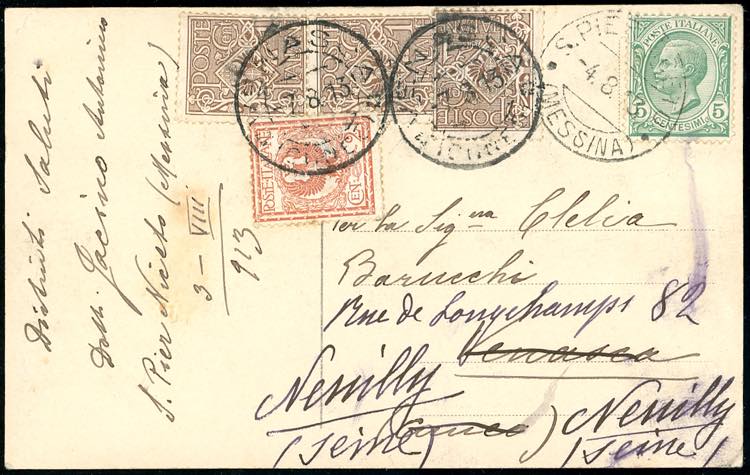 Distinti Saluti
Dott. Jacino Antonino
S. Pier Niceto (Messina)
3 - VIII
913
POSTE ITALIANE
5 CENTESIMI 5
S. PIE
-4.8
(MESSINA)
8.13
Per la Sig.na Clelia
Barucchi
Rue de Longchamps 82
Venasca
Neuilly
(Seine)
(Cuneo)
Neuilly
(Seine)